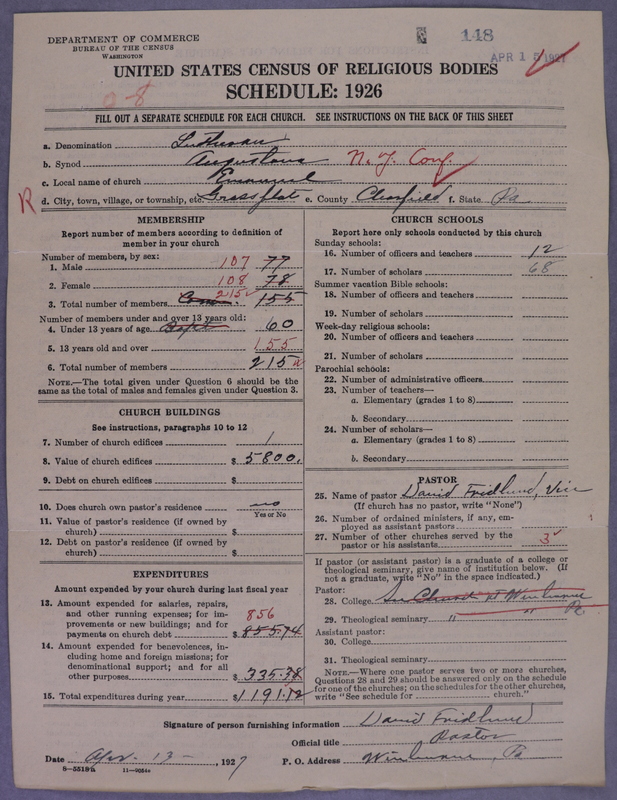 DEPARTMENT OF COMMERCE
BUREAU OF THE CENSUS
WASHINGTON
148
APR 15 1927
UNITED STATES CENSUS OF RELIGIOUS BODIES
SCHEDULE: 1926
0-8
FILL OUT A SEPARATE SCHEDULE FOR EACH CHURCH. SEE INSTRUCTIONS ON THE BACK OF THIS SHEET
a. Denomination Lutheran
b. Synod Augustana N. Y. Conf.
c. Local name of church Emanuel
R d. City, town, village, or township, etc. Grassflat e. County Clearfield f. State Pa
MEMBERSHIP
Report number of members according to definition of
member in your church
Number of members, by sex:
1. Male 107 77
2. Female 108 78
3. Total number of members Com. 215 155
Number of members under and over 13 years old:
4. Under 13 years of age Bapt 60
5. 13 years old and over 155
6. Total number of members 215
NOTE.—The total given under Question 6 should be
same as the total of males and females given under Question 3.
CHURCH BUILDINGS
See instructions, paragraphs 10 to 12
7. Number of church edifices 1
8. Value of church edifices $ 5800.
9. Debt on church edifices $
10. Does church own pastor's residence? no
Yes or No
11. Value of pastor's residence (if owned by
church) $
12. Debt on pastor's residence (if owned by
church) $
EXPENDITURES
Amount expended by your church during last fiscal year
13. Amount expended for salaries, repairs,
and other running expenses; for im-
provements or new buildings; and for
payments on church debt 856 $ 855.74
14. Amount expended for benevolences, in-
cluding home and foreign missions; for
denominational support; and for all
other purposes $ 335.38
15. Total expenditures during year $ 1191.12
CHURCH SCHOOLS
Report here only schools conducted by this church
Sunday schools:
16. Number of officers and teachers 12
17. Number of scholars 68
Summer vacation Bible schools:
18. Number of officers and teachers
19. Number of scholars
Week-day religious schools:
20. Number of officers and teachers
21. Number of scholars
Parochial schools:
22. Number of administrative officers
23. Number of teachers—
a. Elementary (grades 1 to 8)
b. Secondary
24. Number of scholars—
a. Elementary (grades 1 to 8)
b. Secondary
PASTOR
25. Name of pastor David Fridlund, Vice
(If church has no pastor, write "None")
26. Number of ordained ministers, if any, em-
ployed as assistant pastors
27. Number of other churches served by the
pastor or his assistants 3
If pastor (or assistant pastor) is a graduate of a college or
theological seminary, give name of institution below. (If
not a graduate, write "No" in the space indicated.)
Pastor:
28. College See Church at Winburne
29. Theological seminary " " Pa.
Assistant pastor:
30. College
31. Theological seminary
NOTE.—Where one pastor serves two or more churches,
Questions 28 and 29 should be answered only on the schedule
for one of the churches; on the schedules for the other churches,
write "See schedule for church."
Signature of person furnishing information David Fridlund
Official title Pastor
Date Apr. 13 - , 1927 P. O. Address Winburne, Pa
8—5518a 11—9054a